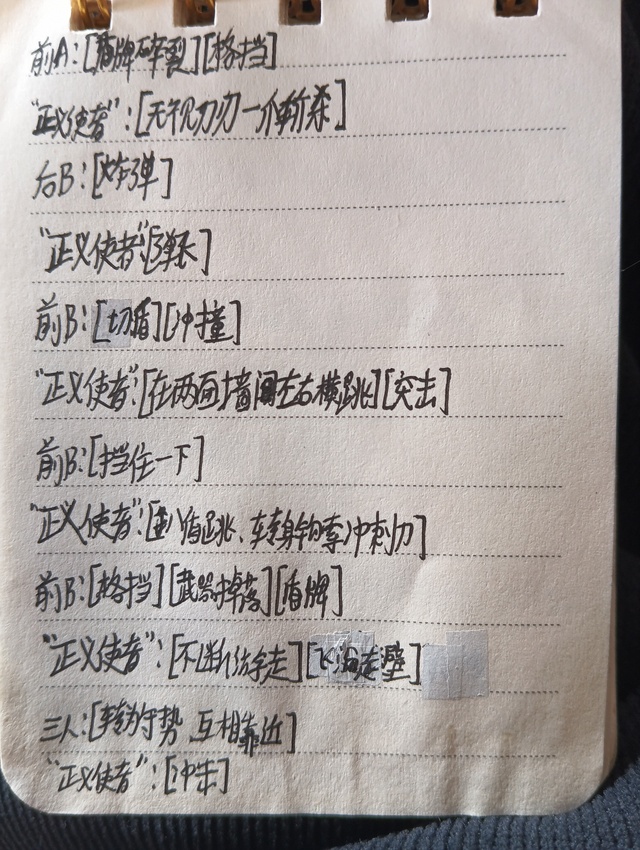 前A:[盾牌碎裂][格挡]
"正义使者":[无视刀刃一个斩杀]
后B:[炸弹]
"正义使者"[弹杀]
前B:[切盾][冲撞]
"正义使者":[在两面墙间左右横跳][突击]
前B:[挡住一下]
"正义使者":[盾跳、转身钩索冲刺刀]
前B:[格挡][武器掉落][盾牌]
"正义使者":[不断绕字走][飞海走壁]
三人:[转为守势 互相靠近]
"正义使者":[冲击]